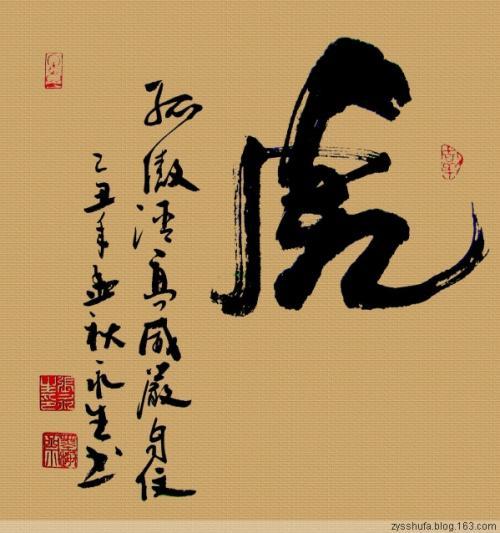 虎
孤傲清高威嚴自信
己丑年孟秋永生书
zysshufa.blog.163.com